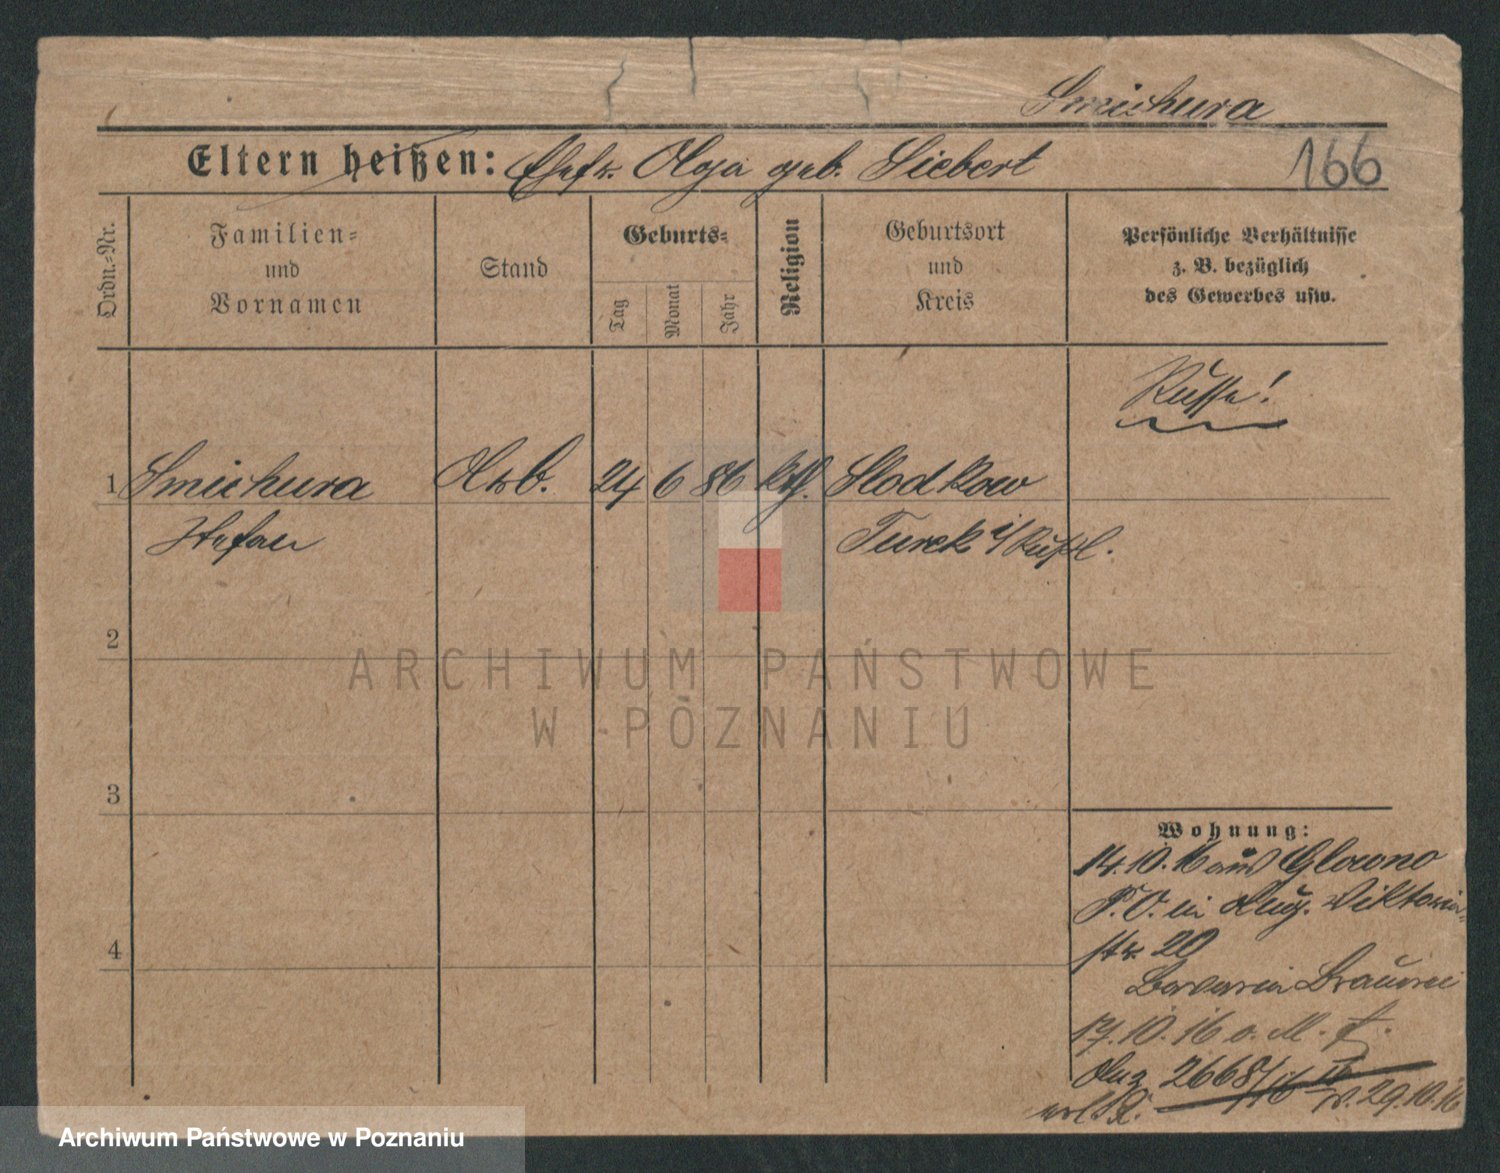 Smichura
Eltern heißen: Ehefr. Olga geb. Siebert
166
Ordn.-Nr.
Familien-
und
Vornamen
Stand
Geburts-
Tag
Monat
Jahr
Religion
Geburtsort
und
Kreis
Persönliche Verhältnisse
z. B. bezüglich
des Gewerbes usw.
Russe!
1 Smichura Arb. 24 6 86 kth. Slodkow
Stefan Turek i/Rußl.
2
3
4
Wohnung:
14.10.16 aus Glowno
P.O. in Aug. Viktoria-
str. 20
Bavaria Brauerei
17.10.16 o. M. f.
2668/16 IV
v. 29.10.16
ARCHIWUM PAŃSTWOWE
W POZNANIU
Archiwum Państwowe w Poznaniu